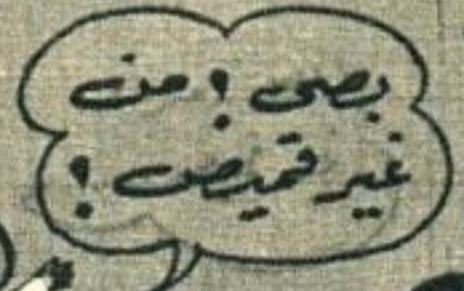 بصى ؟ من
غير قميص ؟